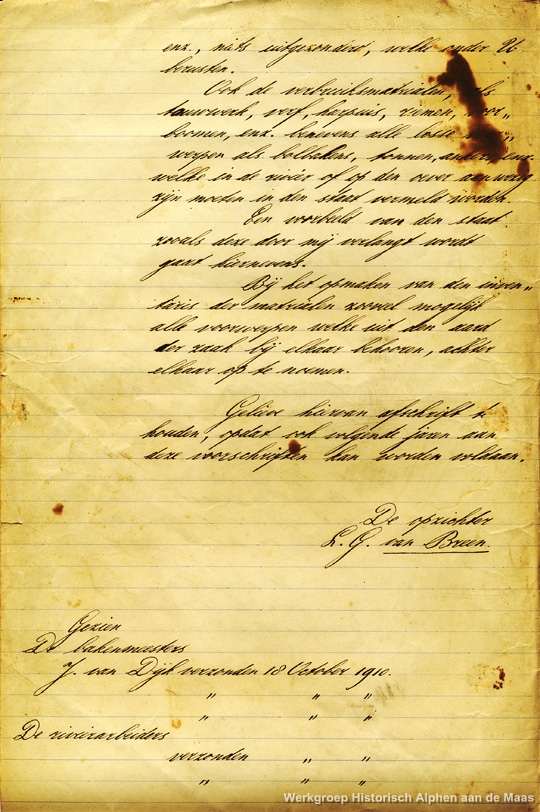 enz., niets uitgezonderd, welke onder U
berusten.
Ook de verbruiksmaterialen, als
touwwerk, verf, harpuis, riemen,
boomen, enz. benevens alle losse
werpen als bolbakens, tonnen, ankers, enz.
welke in de rivier of op den oever aanwezig
zijn moeten in den staat vermeld worden.
Een voorbeeld van den staat
zooals deze door mij verlangt wordt
gaat hiernevens.
Bij het opmaken van den inven„
taris der materialen zooveel mogelijk
alle voorwerpen welke uit den aard
der zaak bij elkaar behooren, achter
elkaar op te noemen.
Gelieve hiervan afschrift te
houden, opdat ook volgende jaren aan
deze voorschriften kan worden voldaan.
De opzichter
L. G. van Breen
Gezien
De bakenmeesters
J. van Dijk verzonden 18 October 1910.
„ „ „
„ „ „
De rivierarbeiders
verzonden „ „
„ „ „
Werkgroep Historisch Alphen aan de Maas